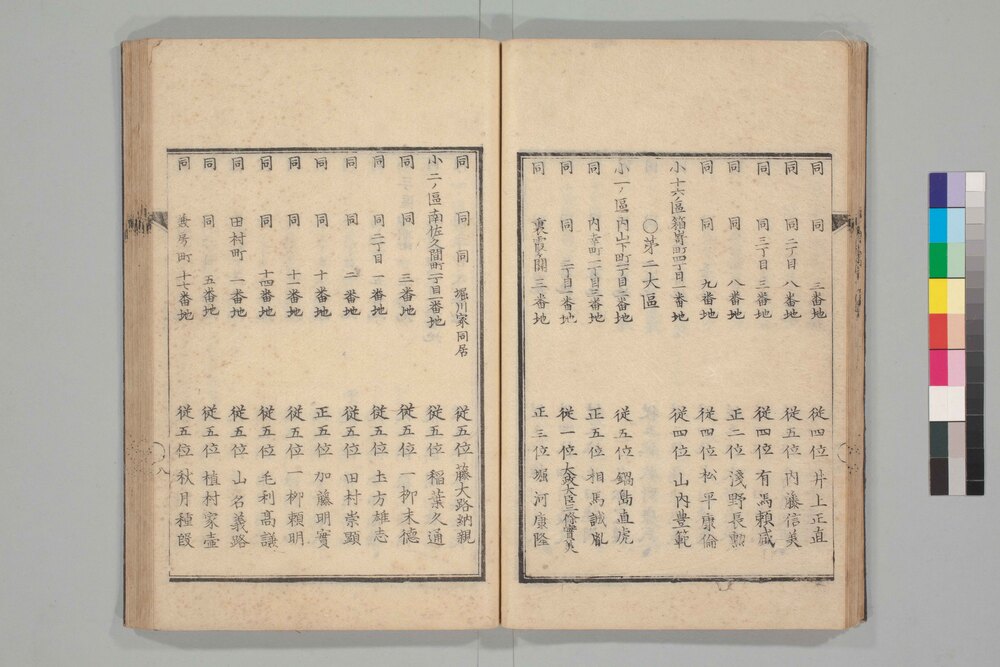 同 同 三番地 従四位 井上正直
同 同二丁目 八番地 従五位 内藤信美
同 同三丁目 三番地 従四位 有馬頼咸
同 同 八番地 正二位 淺野長勲
同 同 九番地 従四位 松平康倫
小十六ノ區 箱崎町四丁目一番地 従四位 山内豊範
〇第二大區
小一ノ區 内山下町一丁目二番地 従五位 鍋島直虎
同 内幸町一丁目三番地 正五位 相馬誠胤
同 同 二丁目一番地 従一位 太政大臣三條實美
同 裏霞ヶ關三番地 正三位 堀河康隆
同 同 同 堀川家同居 従五位 藤大路納親
小二ノ區 南佐久間町一丁目二番地 従五位 稲葉久通
同 同 三番地 従五位 一柳末德
同 同二丁目 一番地 従五位 土方雄志
同 同 二番地 従五位 田村崇顯
同 同 十番地 正五位 加藤明實
同 同 十一番地 従五位 一柳頼明
同 同 十四番地 従五位 毛利高謙
同 田村町 一番地 従五位 山名義路
同 同 五番地 従五位 植村家壷
同 町 十七番地 従五位 秋月種殷
八